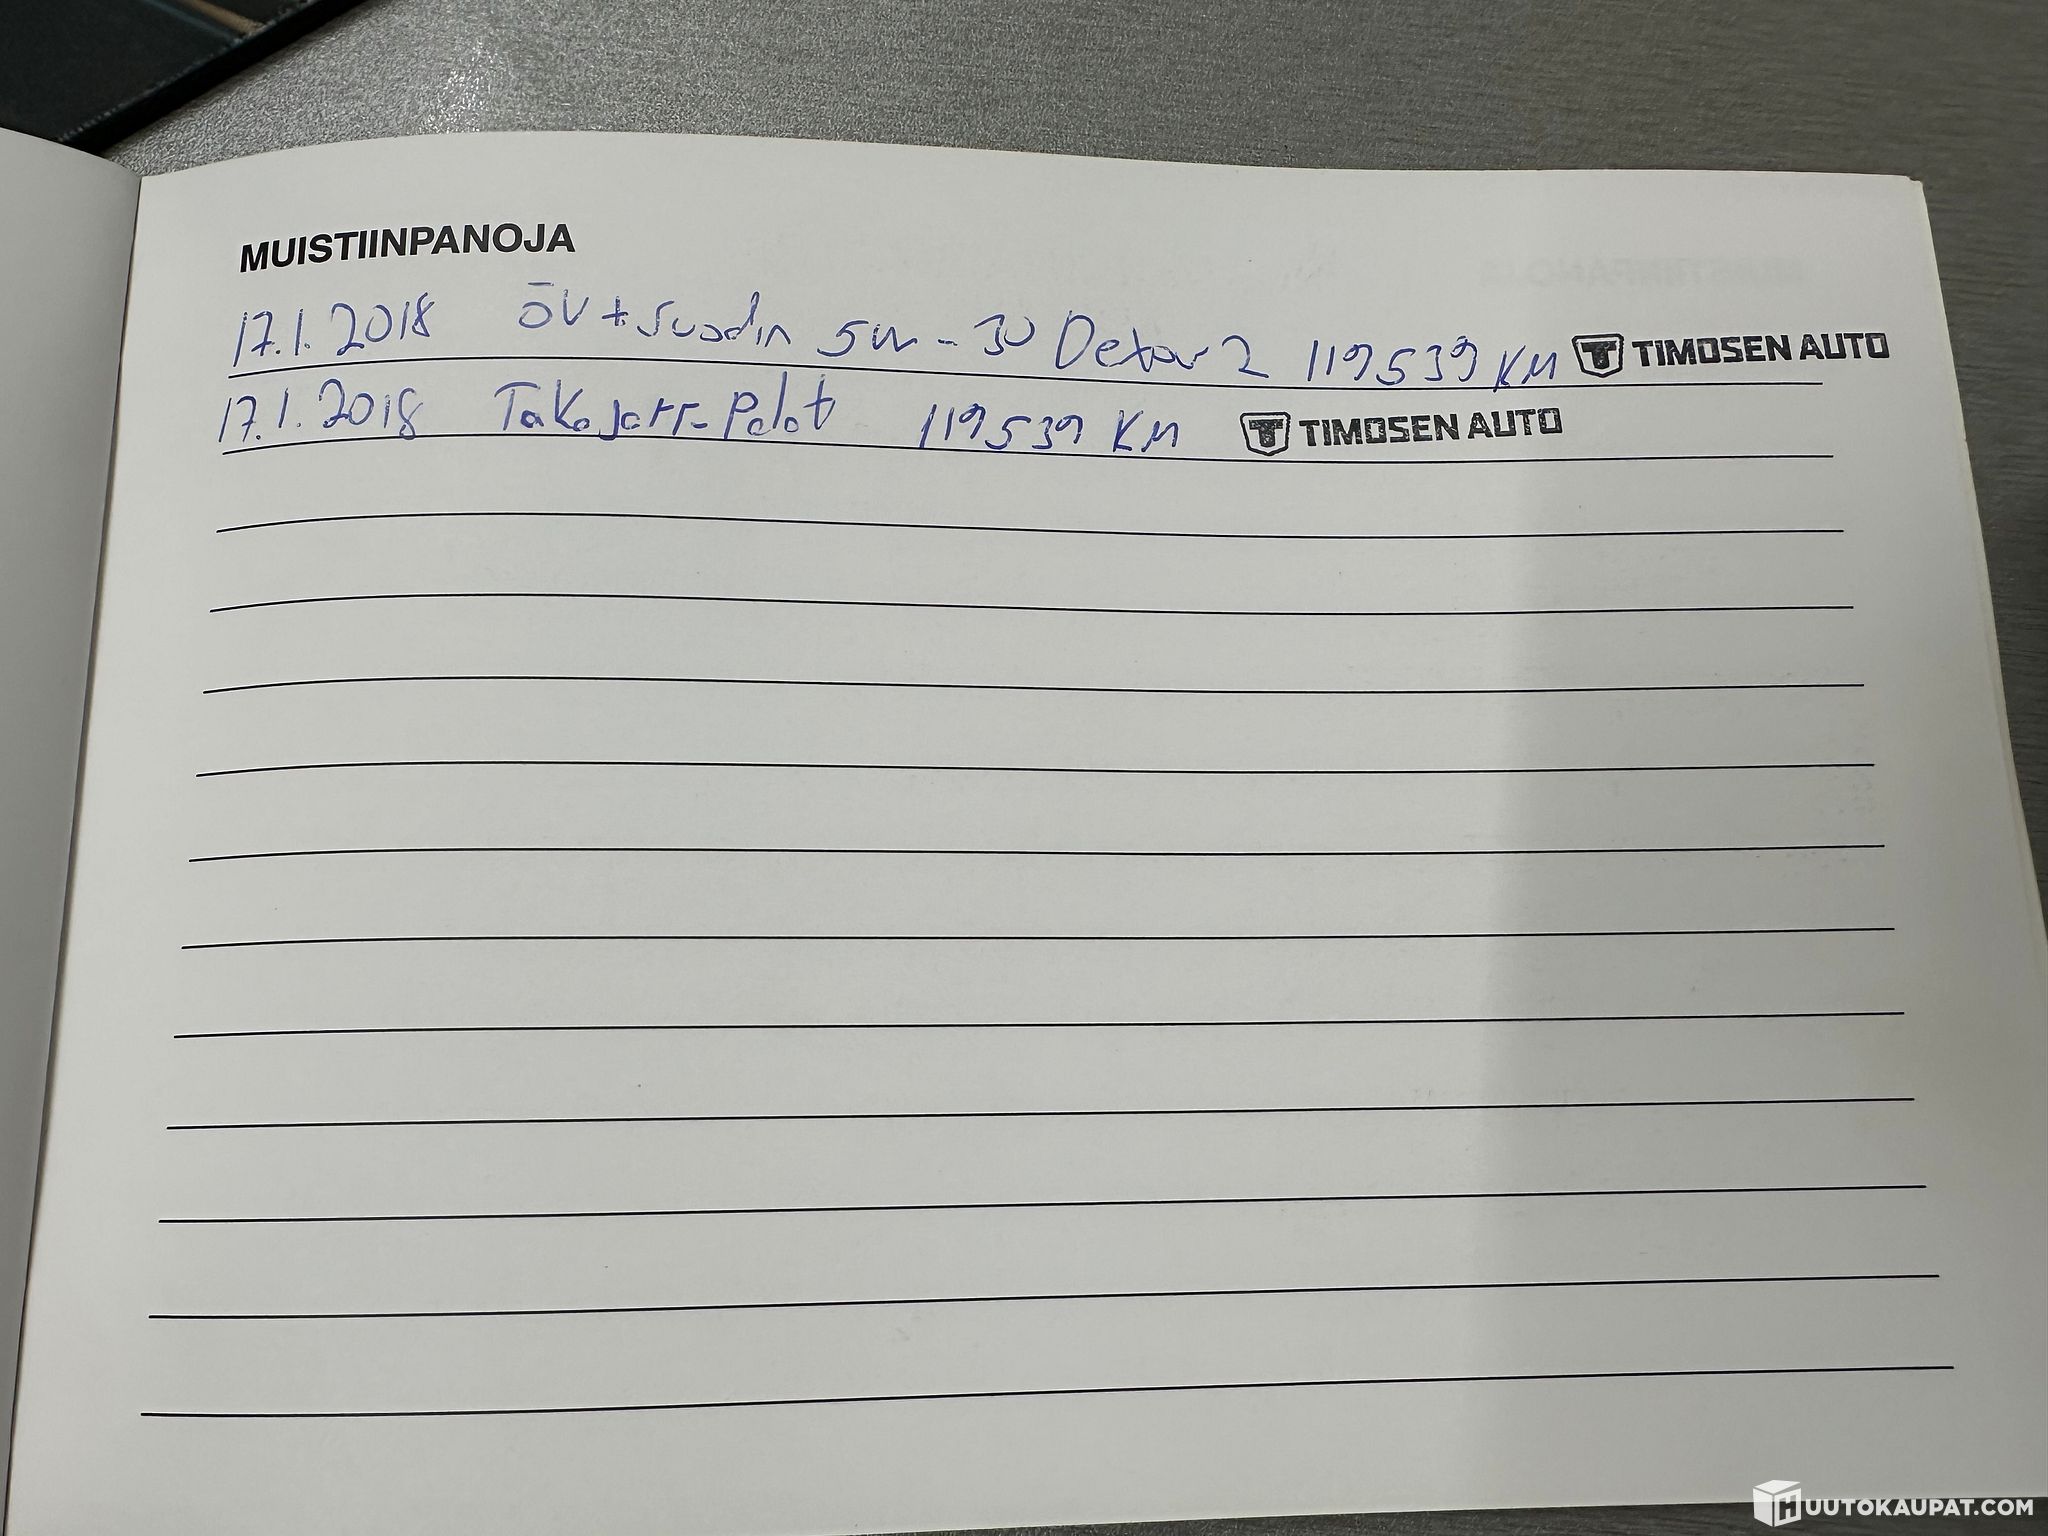 MUISTIINPANOJA
17.1.2018 ÖV + suodin 5W-30 Dexos 2 119539 KM TIMOSEN AUTO
17.1.2018 Takajarr-Palat 119539 KM TIMOSEN AUTO
HUUTOKAUPAT.COM